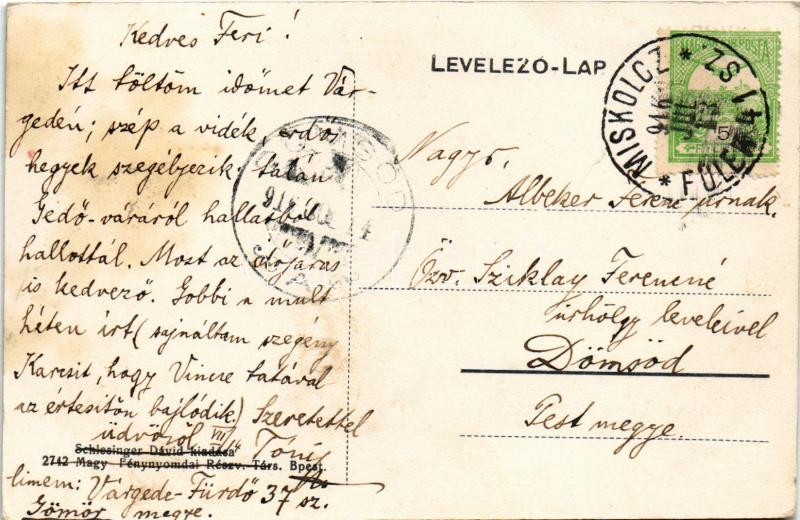 Kedves Feri!
Itt töltöm időmet Vár-
gedén; szép a vidék erdős
hegyek szegélyezik. talán
Gedő-váráról hallasból
hallottál. Most az időjárás
is kedvező. Gobbi a mult
héten írt (sajnáltam szegény
Karcsit, hogy Vincze tatával
az értesitőn bajlódik.) Szeretettel
üdvözöl VII/ Tóni
Schlesinger Dávid kiadása
2742 Magy Fénynyomdai Részv.-Társ. Bpest.
Címem: Várgede-Fürdő 37 sz.
Gömör megye.
LEVELEZŐ-LAP
MISKOLCZ * FÜLEK * 141 SZ
916
DÖMSÖD
Nagys.
Albeker Ferenc urnak.
Özv. Sziklay Ferencné
urhölgy leveleivel
Dömsöd
Pest megye.